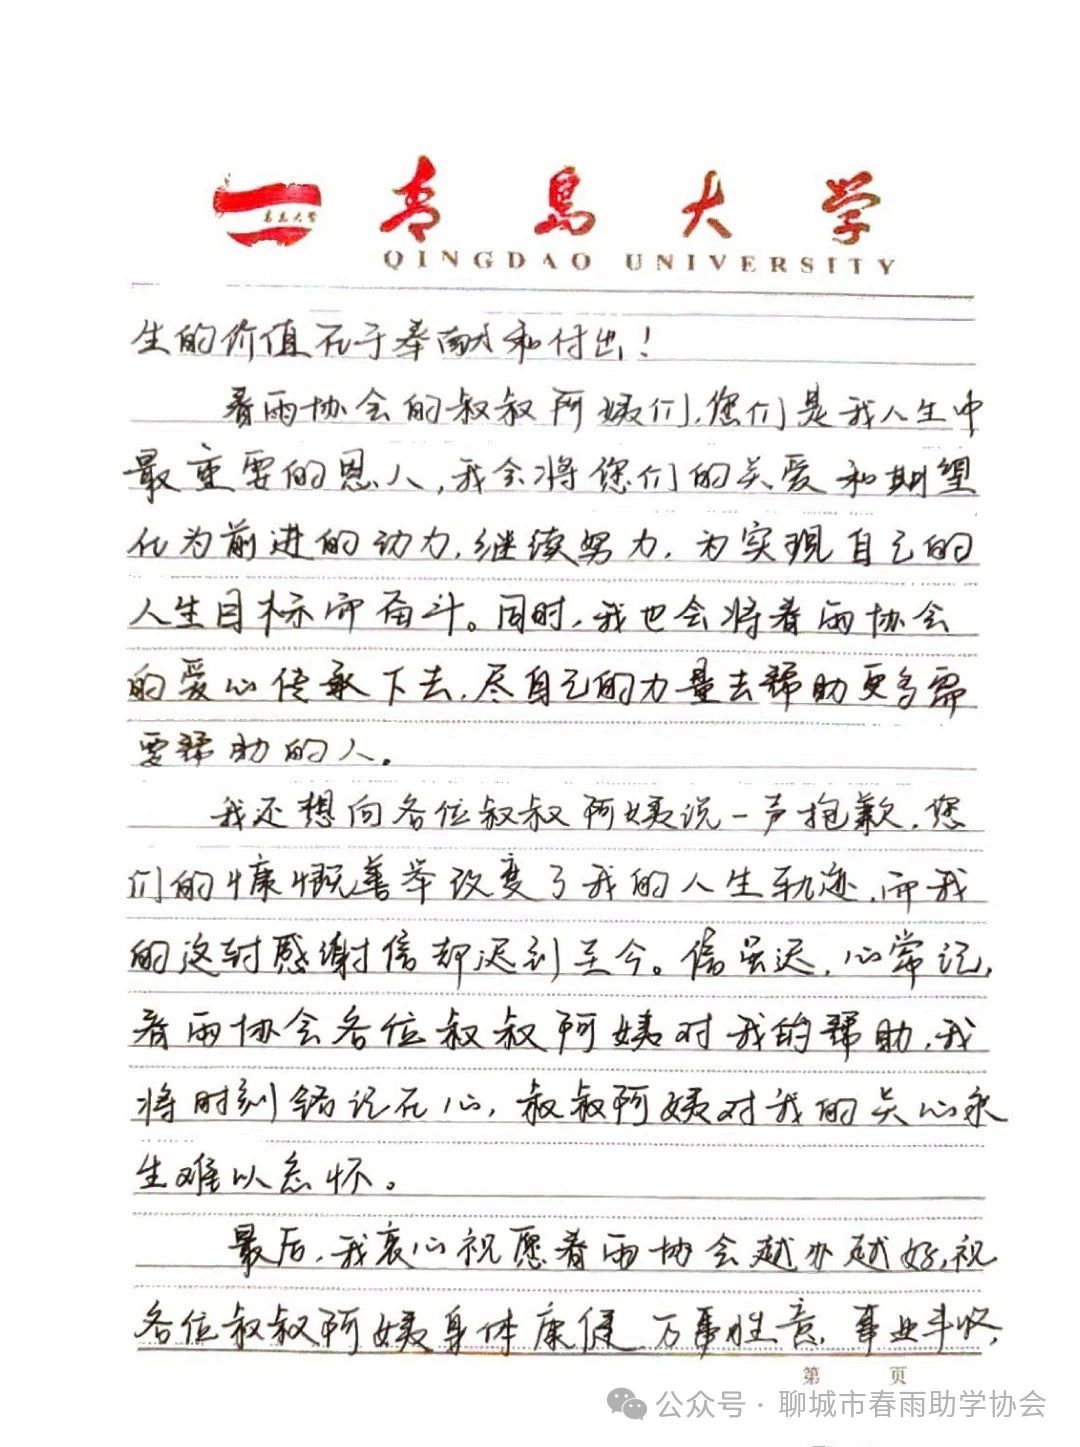 青岛大学
青岛大学
QINGDAO UNIVERSITY
生的价值在于奉献和付出！
春雨协会的叔叔阿姨们，您们是我人生中
最重要的恩人，我会将您们的关爱和期望
化为前进的动力，继续努力，为实现自己的
人生目标而奋斗。同时，我也会将春雨协会
的爱心传承下去，尽自己的力量去帮助更多需
要帮助的人。
我还想向各位叔叔阿姨说一声抱歉，您
们的慷慨善举改变了我的人生轨迹，而我
的这封感谢信却迟到至今。信虽迟，心常记，
春雨协会各位叔叔阿姨对我的帮助，我
将时刻铭记在心，叔叔阿姨对我的关心永
生难以忘怀。
最后，我衷心祝愿春雨协会越办越好，祝
各位叔叔阿姨身体康健、万事胜意、事业丰收，
第 页
公众号·聊城市春雨助学协会